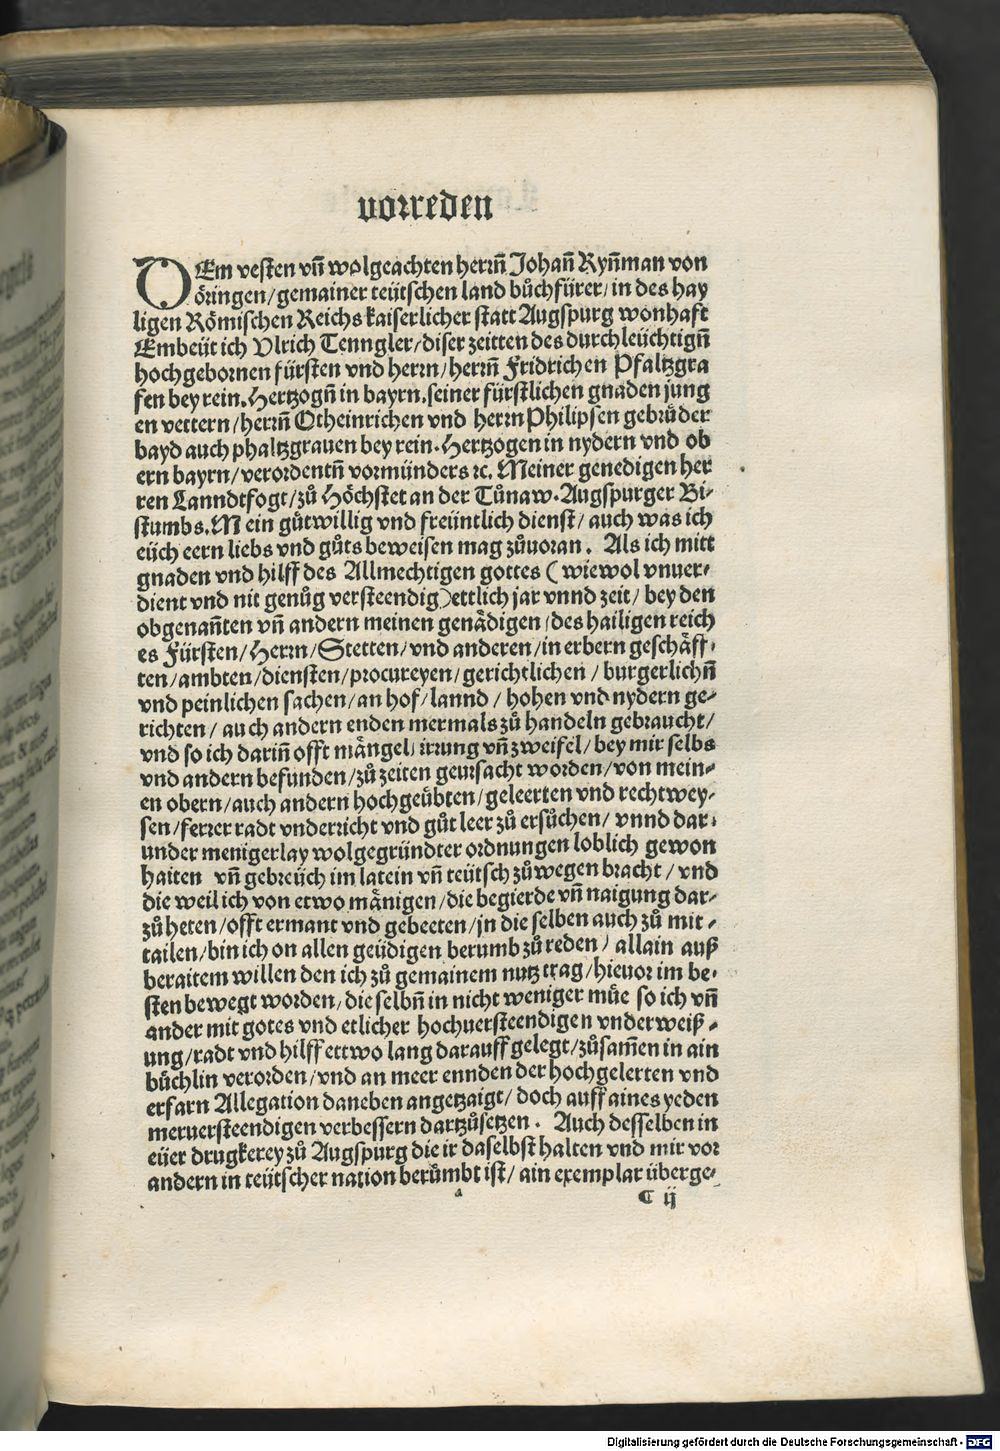 vorreden
DEm vesten vñ wolgeachten herrñ Johañ Rynman von
öringen/gemainer teütschen land bůchfürer/in des hay
ligen Römischen Reichs kaiserlicher statt Augspurg wonhaft
Embeüt ich Vlrich Tenngler/diser zeitten des durchleüchtigñ
hochgebornen fürsten vnd herrn/herrñ Fridrichen Pfaltzgra
fen bey rein. Hertzogñ in bayrn. seiner fürstlichen gnaden jung
en vettern/herrñ Otheinrichen vnd herrn Philipsen gebrüder
bayd auch phaltzgrauen bey rein. Hertzogen in nydern vnd ob
ern bayrn/verordentñ vormünders ꝛc. Meiner genedigen her
ren Lanndtfogt/zů Höchstet an der Tůnaw. Augspurger Bi⸗
stumbs. Mein gůtwillig vnd freüntlich dienst/auch was ich
eüch eern liebs vnd gůts beweisen mag zůuoran. Als ich mitt
gnaden vnd hilff des Allmechtigen gottes (wiewol vnuer⸗
dient vnd nit genůg versteendig) ettlich jar vnnd zeit/bey den
obgenañten vñ andern meinen genädigen/des hailigen reich
es Fürsten/Herrn/Stetten/vnd anderen/in erbern geschäff⸗
ten/ambten/diensten/procureyen/gerichtlichen/burgerlichñ
vnd peinlichen sachen/an hof/lannd/hohen vnd nydern ge⸗
richten/auch andern enden mermals zů handeln gebraucht/
vnd so ich dariñ offt mängel/irrung vñ zweifel/bey mir selbs
vnd andern befunden/zů zeiten geursacht worden/von mein⸗
en obern/auch andern hochgeübten/geleerten vnd rechtwey⸗
sen/ferrer radt vnderricht vnd gůt leer zů ersůchen/vnnd dar⸗
under menigerlay wolgegründter ordnungen loblich gewon
haiten vñ gebreüch im latein vñ teütsch zůwegen bracht/vnd
die weil ich von etwo mänigen/die begierde vñ naigung dar⸗
zů heten/offt ermant vnd gebeeten/jn die selben auch zů mit⸗
tailen/bin ich on allen geüdigen berumb zů reden/allain auß
beraitem willen den ich zů gemainem nutz trag/hieuor im be⸗
sten bewegt worden/die selbñ in nicht weniger müe so ich vñ
ander mit gotes vnd etlicher hochuersteendigen vnderweiß⸗
ung/radt vnd hilff ettwo lang darauff gelegt/zůsam̃en in ain
büchlin verorden/vnd an meer ennden der hochgelerten vnd
erfarn Allegation daneben angetzaigt/doch auff aines yeden
meruersteendigen verbessern dartzůsetzen. Auch desselben in
eüer drugkerey zů Augspurg die ir daselbst halten vnd mir vor
andern in teütscher nation berůmbt ist/ain exemplar überge⸗
a
C ij
Digitalisierung gefördert durch die Deutsche Forschungsgemeinschaft - DFG